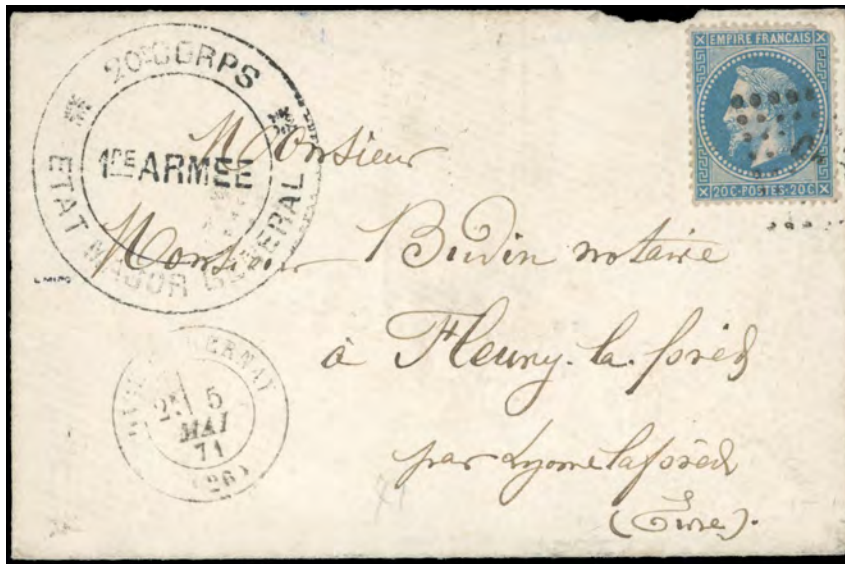 20E CORPS
1RE ARMEE
ETAT MAJOR GENERAL
EMPIRE FRANÇAIS
20C-POSTES-20C
Monsieur
Monsieur Budin notaire
à Fleury-la-forêt
par Lyons laforêt
(Eure).
5
MAI
71